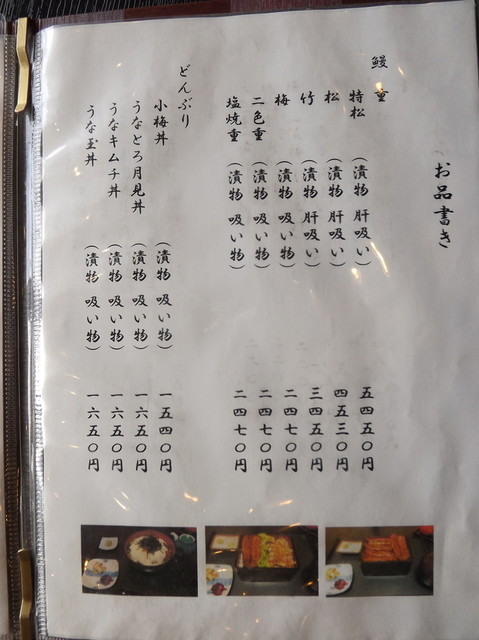 お品書き
鰻重
特松 （漬物 肝吸い） 五四五〇円
松 （漬物 肝吸い） 四五三〇円
竹 （漬物 肝吸い） 三四五〇円
梅 （漬物 吸い物） 二四七〇円
二色重 （漬物 吸い物） 二四七〇円
塩焼重 （漬物 吸い物） 二四七〇円
どんぶり
小梅丼 （漬物 吸い物） 一五四〇円
うなとろ月見丼 （漬物 吸い物） 一六五〇円
うなキムチ丼 （漬物 吸い物） 一六五〇円
うな玉丼 （漬物 吸い物） 一六五〇円